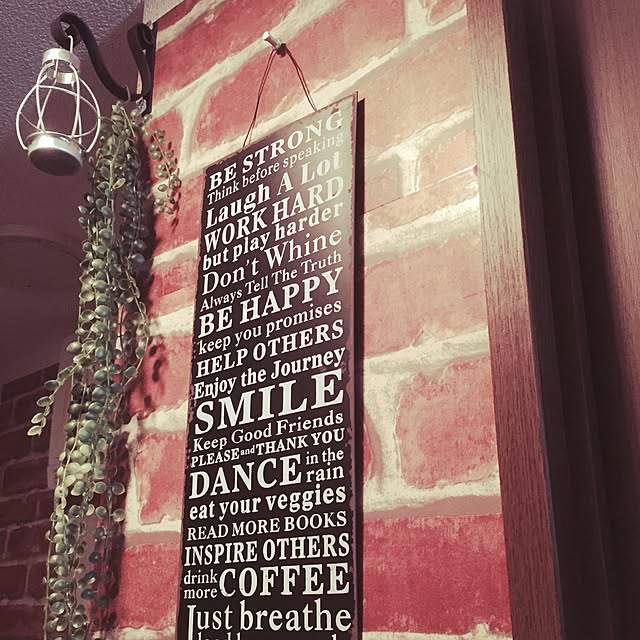 BE STRONG
Think before speaking
Laugh A Lot
WORK HARD
but play harder
Don't Whine
Always Tell The Truth
BE HAPPY
keep you promises
HELP OTHERS
Enjoy the Journey
SMILE
Keep Good Friends
PLEASE and THANK YOU
DANCE in the rain
eat your veggies
READ MORE BOOKS
INSPIRE OTHERS
drink more COFFEE
Just breathe